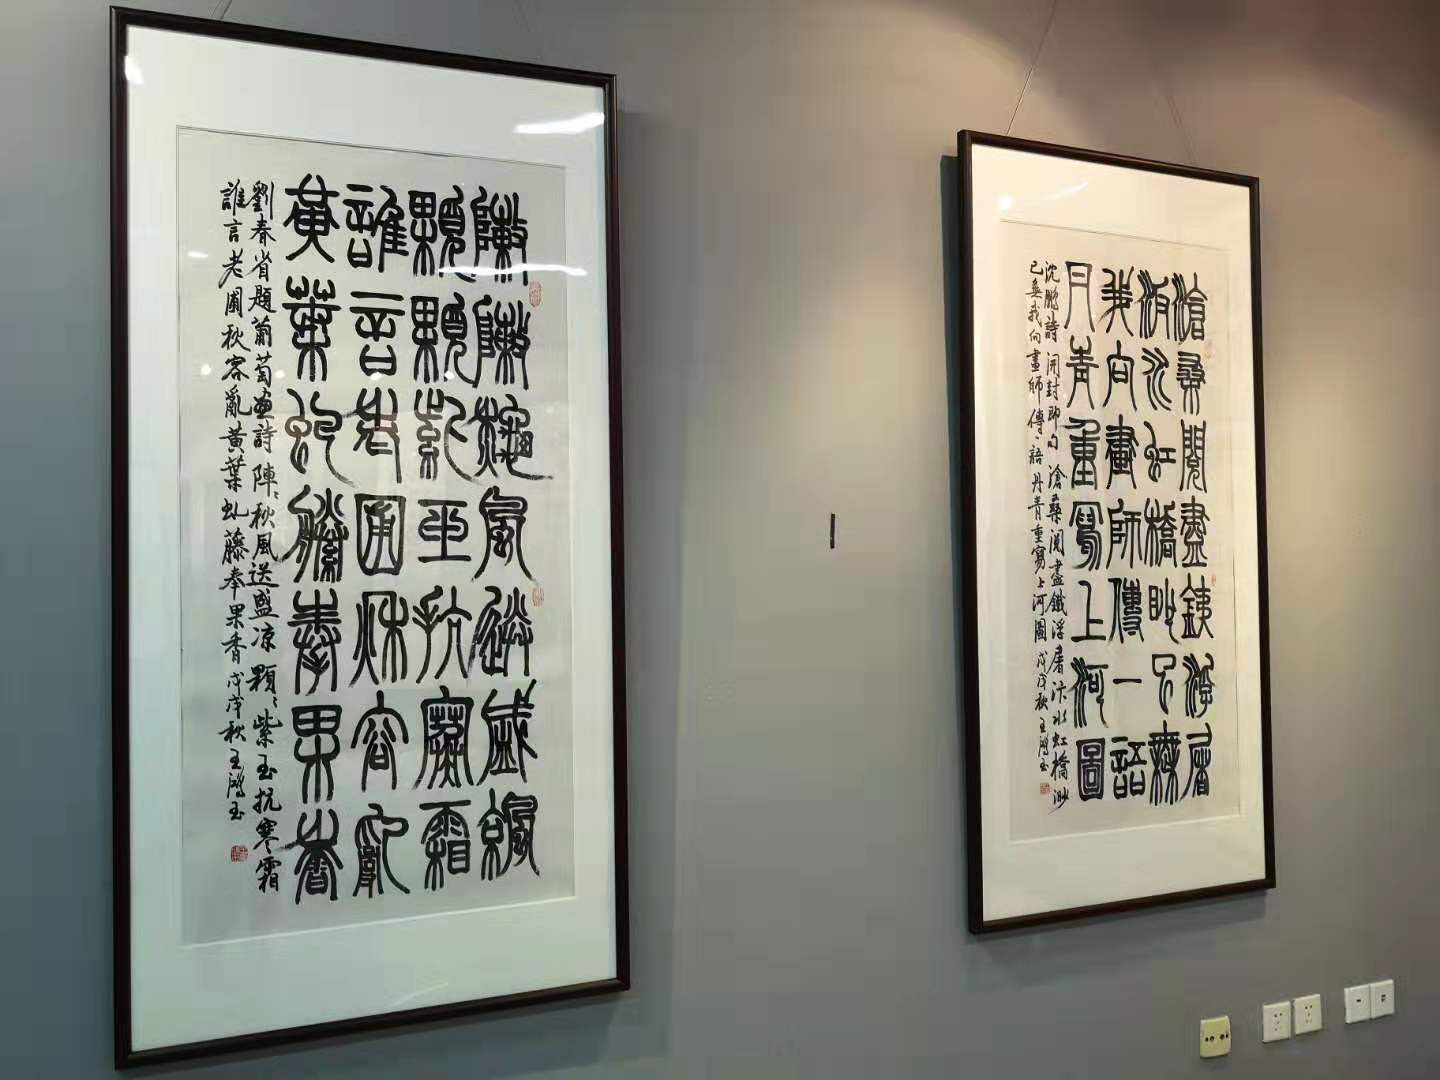 陣陣秋風送盛涼
顆顆紫玉抗寒霜
誰言老圃秋容亂
黃葉虬藤奉果香
劉春省題葡萄畫詩陣々秋風送盛凉顆々紫玉抗寒霜
誰言老圃秋容亂黃葉虬藤奉果香戊戌秋王鴻玉
滄桑閱盡鐵浮屠
汴水虹橋眇已無
我向畫師傳一語
丹青重寫上河圖
沈鵬詩開封即句滄桑閱盡鐵浮屠汴水虹橋渺
已無我向畫師傳一語丹青重寫上河圖戊戌秋王鴻玉